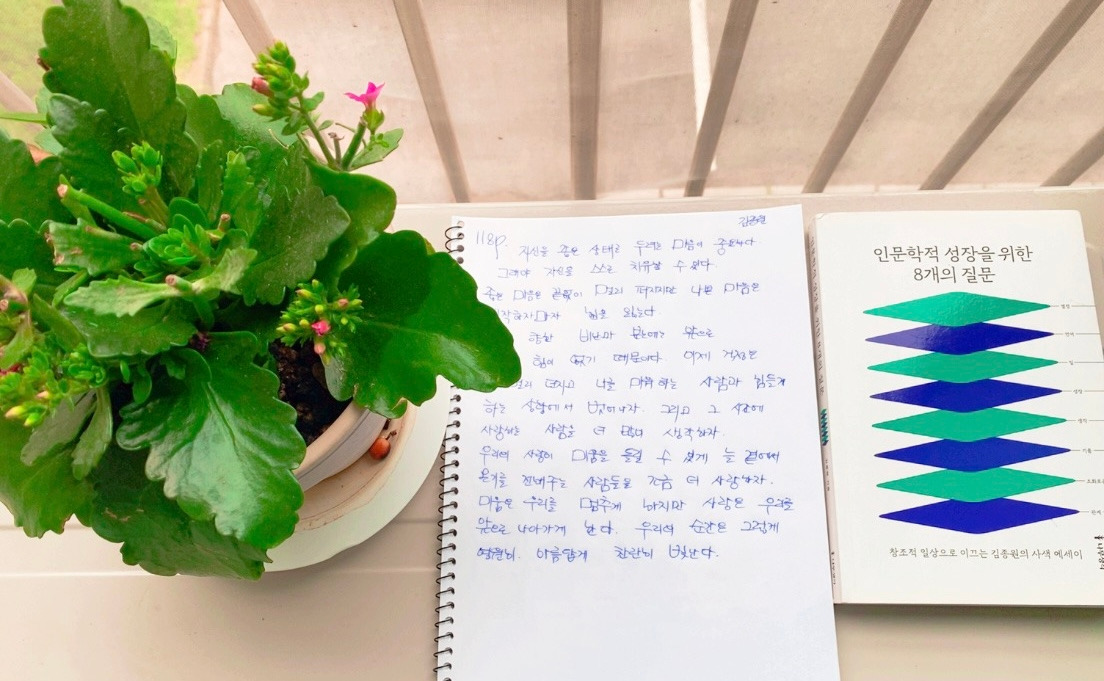 김종원
118p. 자신을 좋은 상태로 두려는 마음이 중요하다.
그래야 자신을 스스로 치유할 수 있다.
좋은 마음은 끝없이 멀리 퍼지지만 나쁜 마음은
시작하자마자 힘을 잃는다
향한 비난과 분노에는 앞으로
힘이 없기 때문이다 이제 걱정은
멀리 던지고 나를 미워하는 사람과 힘들게
하는 상황에서 벗어나자. 그리고 그 시간에
사랑하는 사람을 더 많이 생각하자.
우리의 사랑이 미움을 이길 수 있게 늘 곁에서
온기를 전해주는 사람들을 지금 더 사랑하자.
미움은 우리를 멈추게 하지만 사랑은 우리를
앞으로 나아가게 한다. 우리의 순간은 그렇게
영원히. 아름답게 찬란히 빛난다.
인문학적 성장을 위한
8개의 질문
창조적 일상으로 이끄는 김종원의 사색 에세이